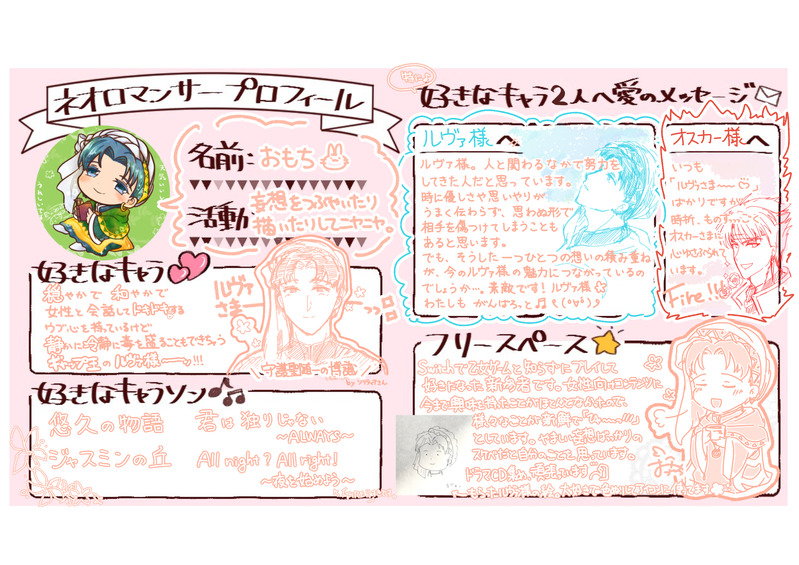 ネオロマンサープロフィール
名前: おもち
活動: 妄想をつぶやいたり
描いたりしてニヤニヤ。
好きなキャラ
穏やかで 和やかで
女性と会話して ドキドキする
ウブ心を持っているけど
静かに冷静に毒を盛ることもできちゃう
ギャップ王の ルヴァ様ーーッ!!!
ルヴァ
さまー
守護聖随一の博識
好きなキャラソン
悠久の物語
君は独りじゃない
〜ALWAYS〜
ジャスミンの丘
All night? All right!
〜夜を始めよう〜
特に♪
好きなキャラ2人へ愛のメッセージ
ルヴァ様へ
ルヴァ様。人と関わるなかで努力を
してきた人だと思っています。
時に優しさや思いやりが
うまく伝わらず、思わぬ形で
相手を傷つけてしまうことも
あると思います。
でも、そうした一つひとつの想いの積み重ね
が、今のルヴァ様の魅力につながっているの
でしょうか…。素敵です!ルヴァ様
わたしも がんばろっと♫
オスカー様へ
いつも
「ルヴァさま〜〜♡」
ばかりですが
時折、ものすっごく
オスカーさまに
心がうばられて
います。
Fire!!
フリースペース
Switchで乙女ゲームと知らずにプレイして
好きになった新参者です。女性向けコンテンツに
今まで興味を持ったことがほとんどなかったので、
様々なことが新鮮で「ひゃ〜〜!!!」
としています。
ドラマCD集め、頑張っています